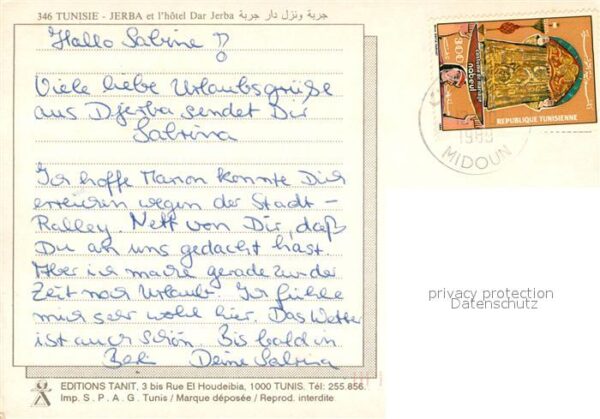 346 TUNISIE - JERBA et l'hôtel Dar Jerba جربة ونزل دار جربة
Hallo Sabine !
Viele liebe Urlaubsgrüße
aus Djerba sendet Dir
Sabrina
Ich hoffe Manon konnte Dich
erreichen wegen der Stadt-
Ralley. Nett von Dir, daß
Du an uns gedacht hast.
Aber ich mache gerade zu der
Zeit noch Urlaub. Ich fühle
mich sehr wohl hier. Das Wetter
ist auch schön. Bis bald in
Deine Sabrina
EDITIONS TANIT, 3 bis Rue El Houdeibia, 1000 TUNIS. Tél: 255.856.
Imp. S . P . A . G . Tunis / Marque déposée / Reprod. interdite
300
nabeul
REPUBLIQUE TUNISIENNE
MIDOUN
privacy protection
Datenschutz